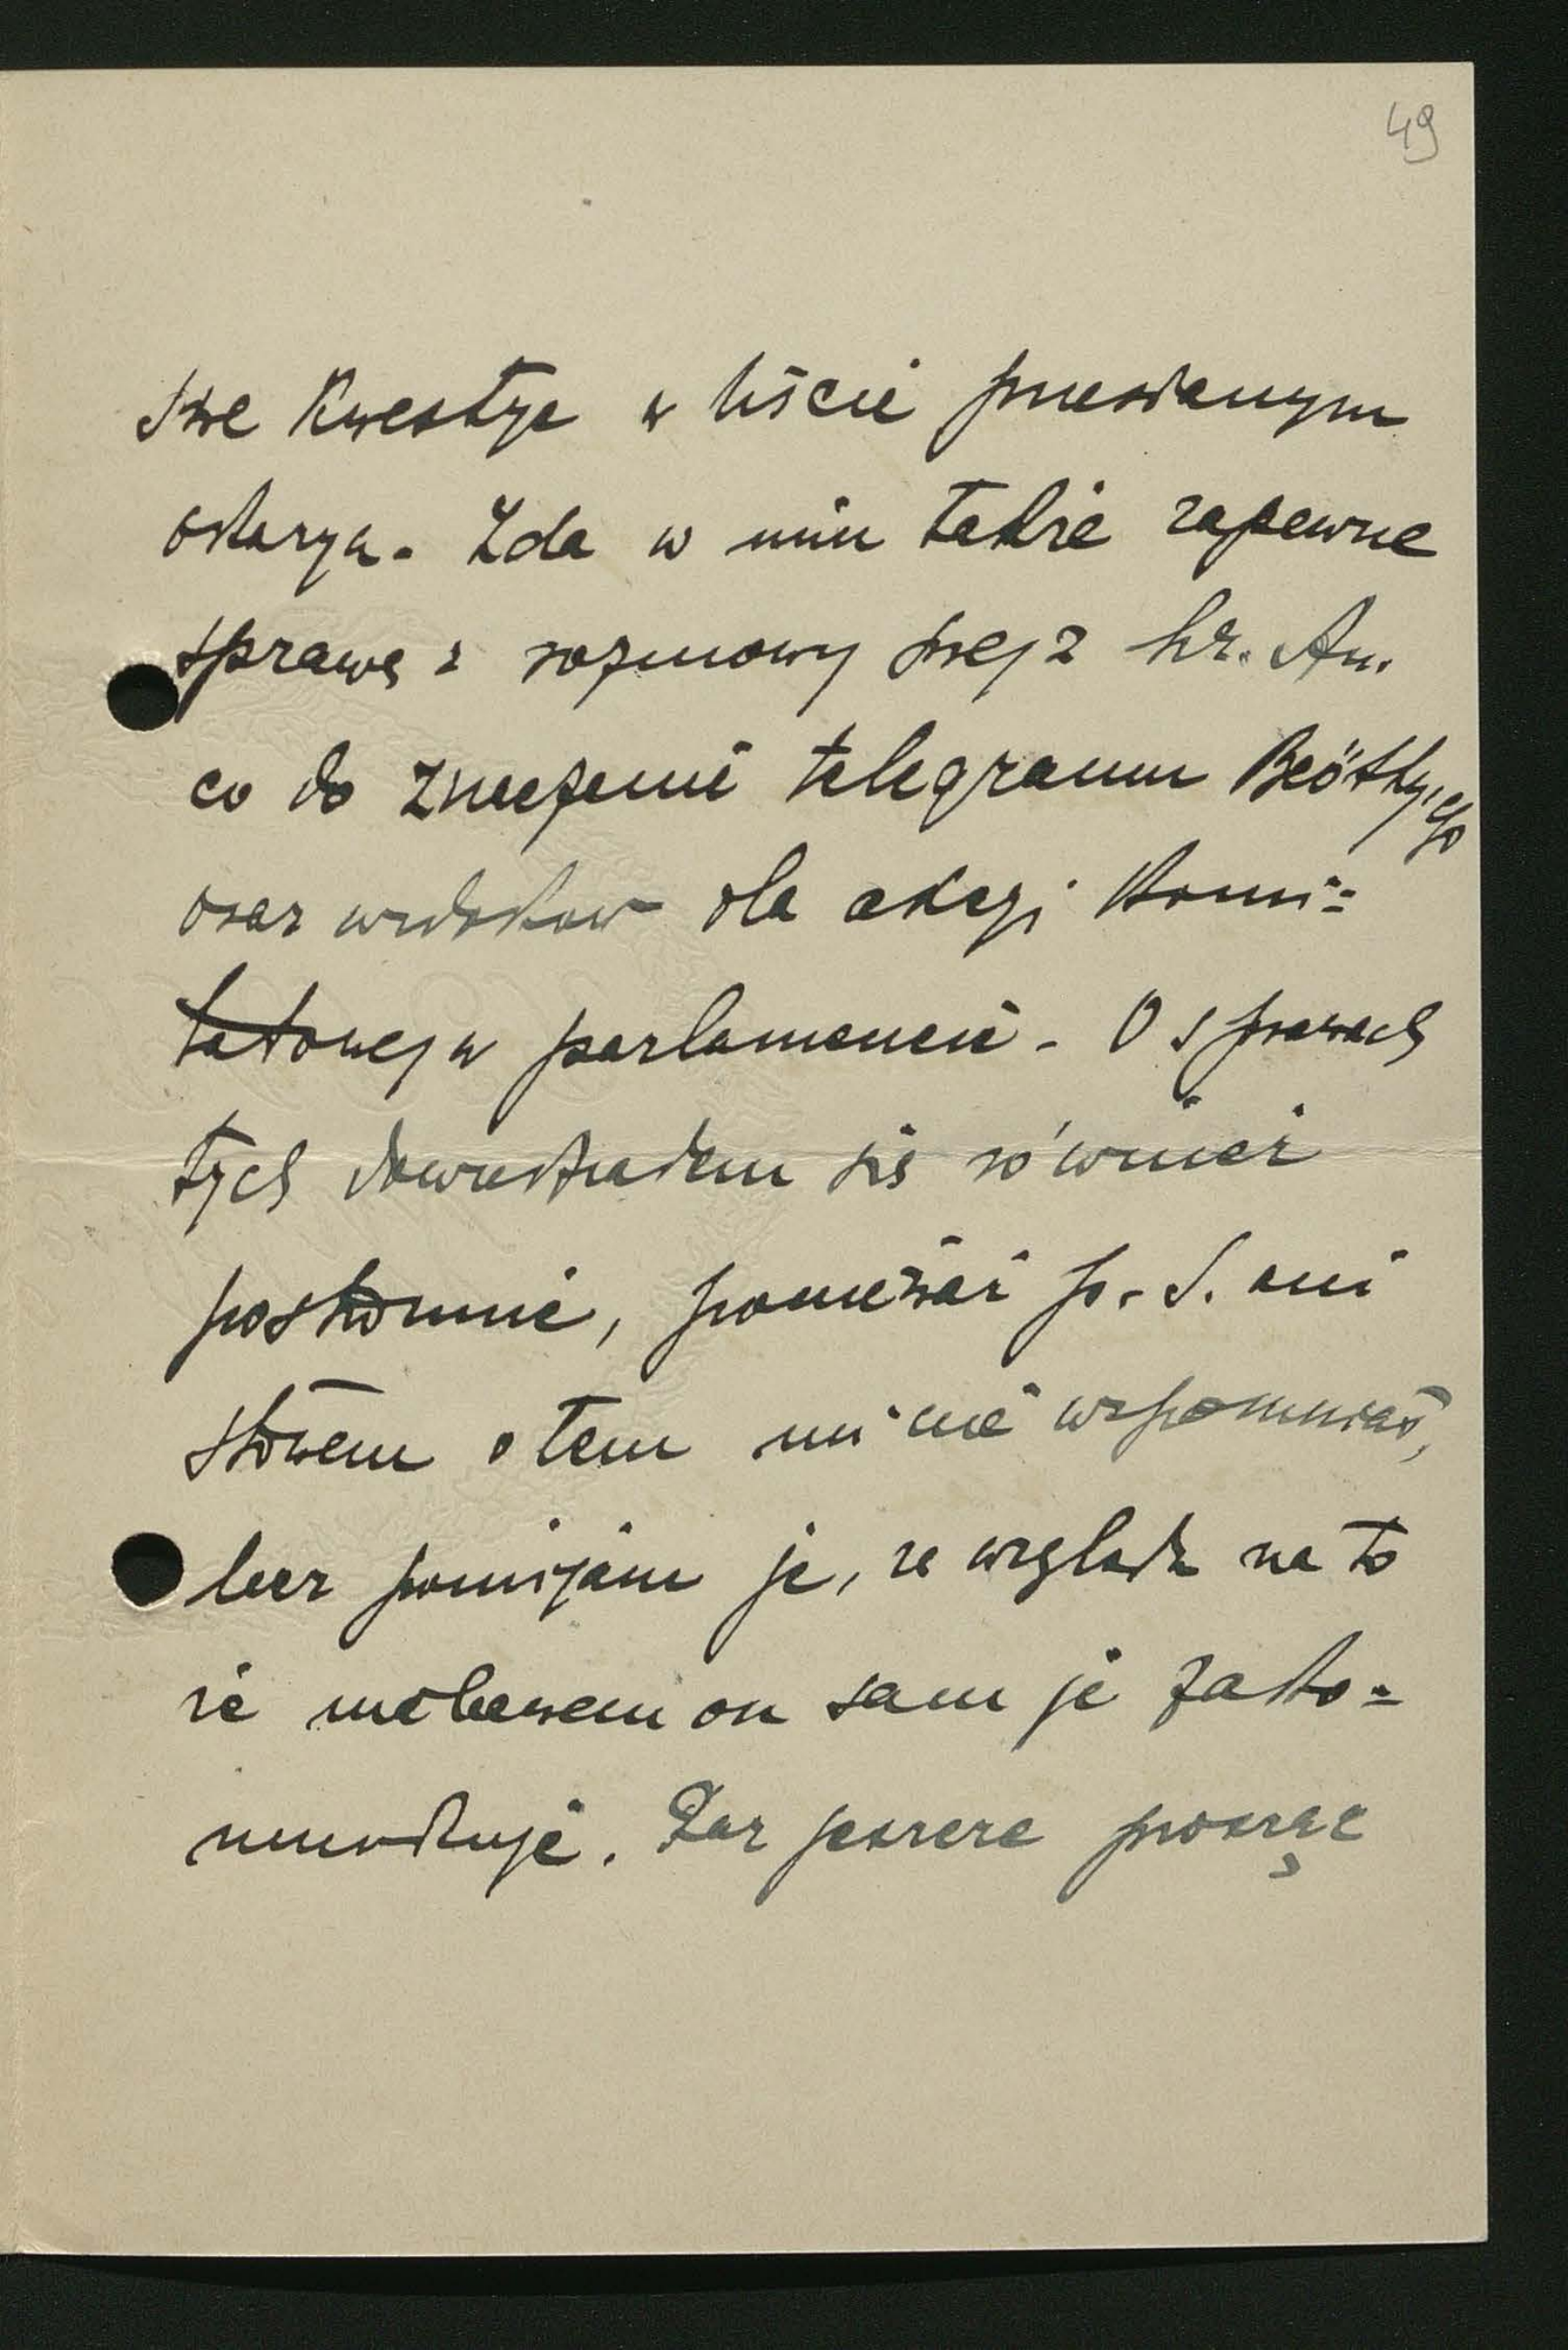 49
swe kwestye w liście przesłanym
oskarża. Zda w nim także zapewne
sprawę z rozmowy swej z hr. An.
co do znaczenia telegramu Beöthy'ego
oraz widoków dla akcyi Komi=
tatowej w parlamencie. O sprawach
tych dowiedziałem się również
postronnie, ponieważ p. S. ani
słowem o tem mi nie wspomniał,
lecz pomijam je, ze względu na to
że niebawem on sam je zako=
munikuje. Raz jeszcze prosząc